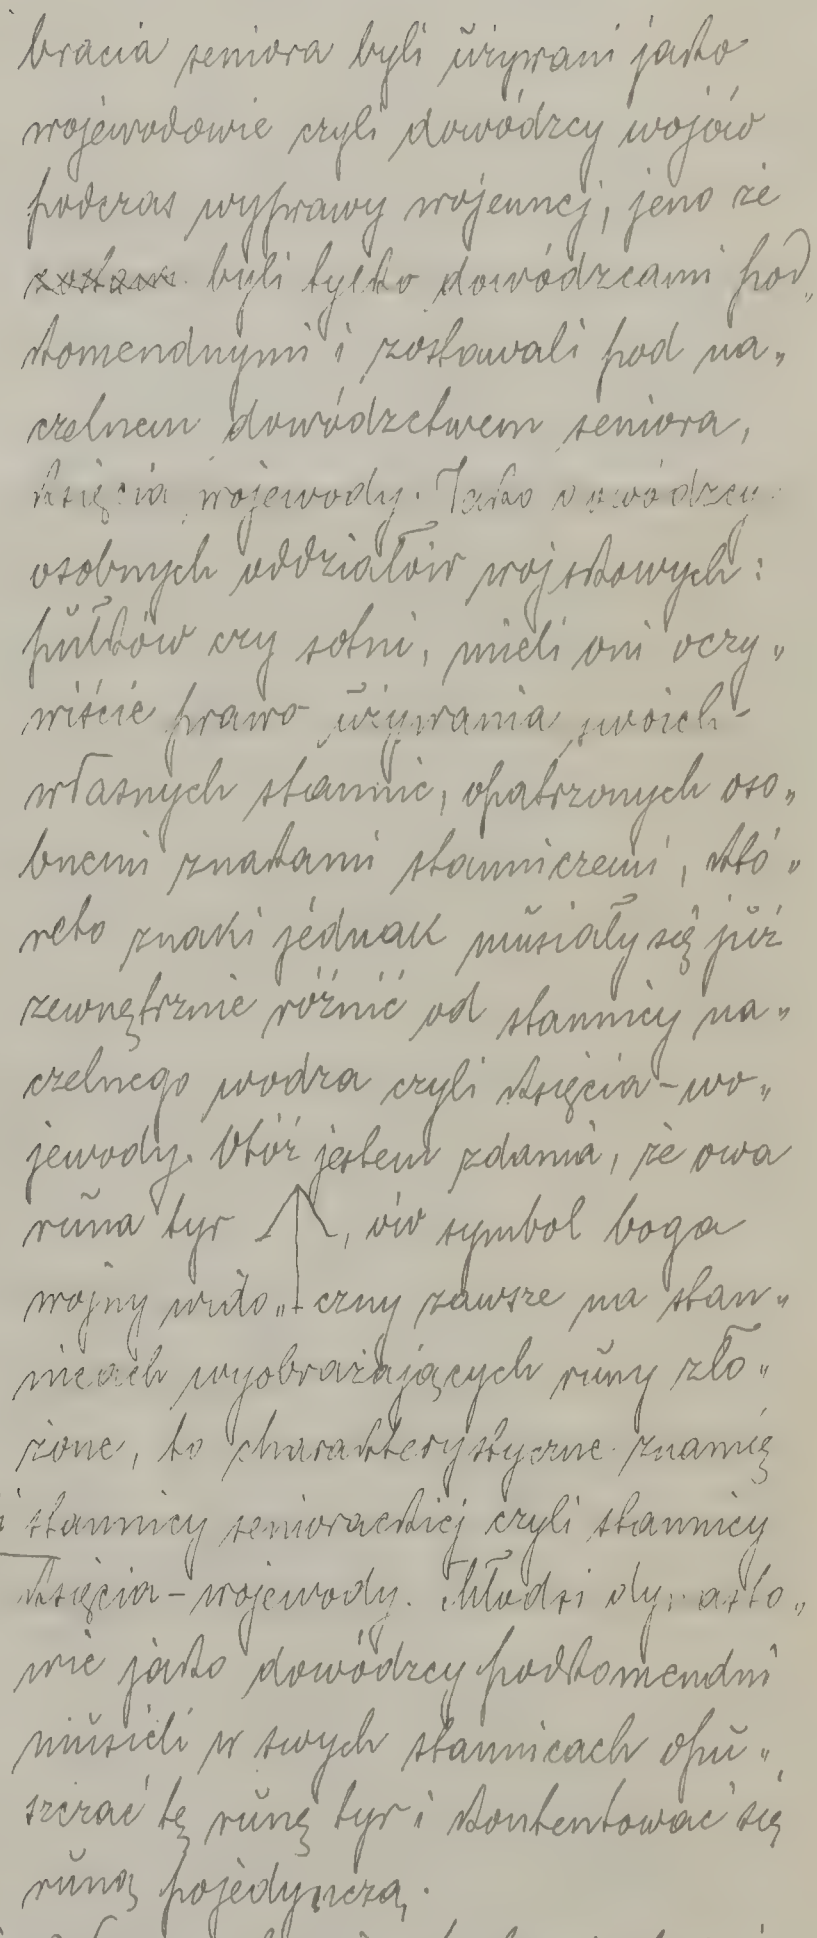 bracia seniora byli używani jako
wojewodowie czyli dowódzcy wojów
podczas wyprawy wojennej, jeno że
zostaw byli tylko dowódzcami pod„
komendnymi i zostawali pod na„
czelnem dowództwem seniora,
księcia wojewody. Jako dowódzcy
osobnych oddziałów wojskowych:
pułków czy sotni, mieli oni oczy„
wiście prawo używania swoich
własnych stannic, opatrzonych oso„
bnemi znakami stanniczemi, któ„
reto znaki jednak musiały się już
zewnętrznie różnić od stannicy na„
czelnego wodza czyli księcia-wo„
jewody. Otóż jestem zdania, że owa
runa tyr ↑, ów symbol boga
wojny wido„czny zawsze na stan„
nicach wyobrażających runy zło„
żone, to charakterystyczne znamię
stannicy seniorackiej czyli stannicy
księcia-wojewody. Młodsi dynasto„
wie jako dowódzcy podkomendni
musieli w swych stannicach opu„
szczać tę runę tyr i kontentować się
runą pojedynczą.